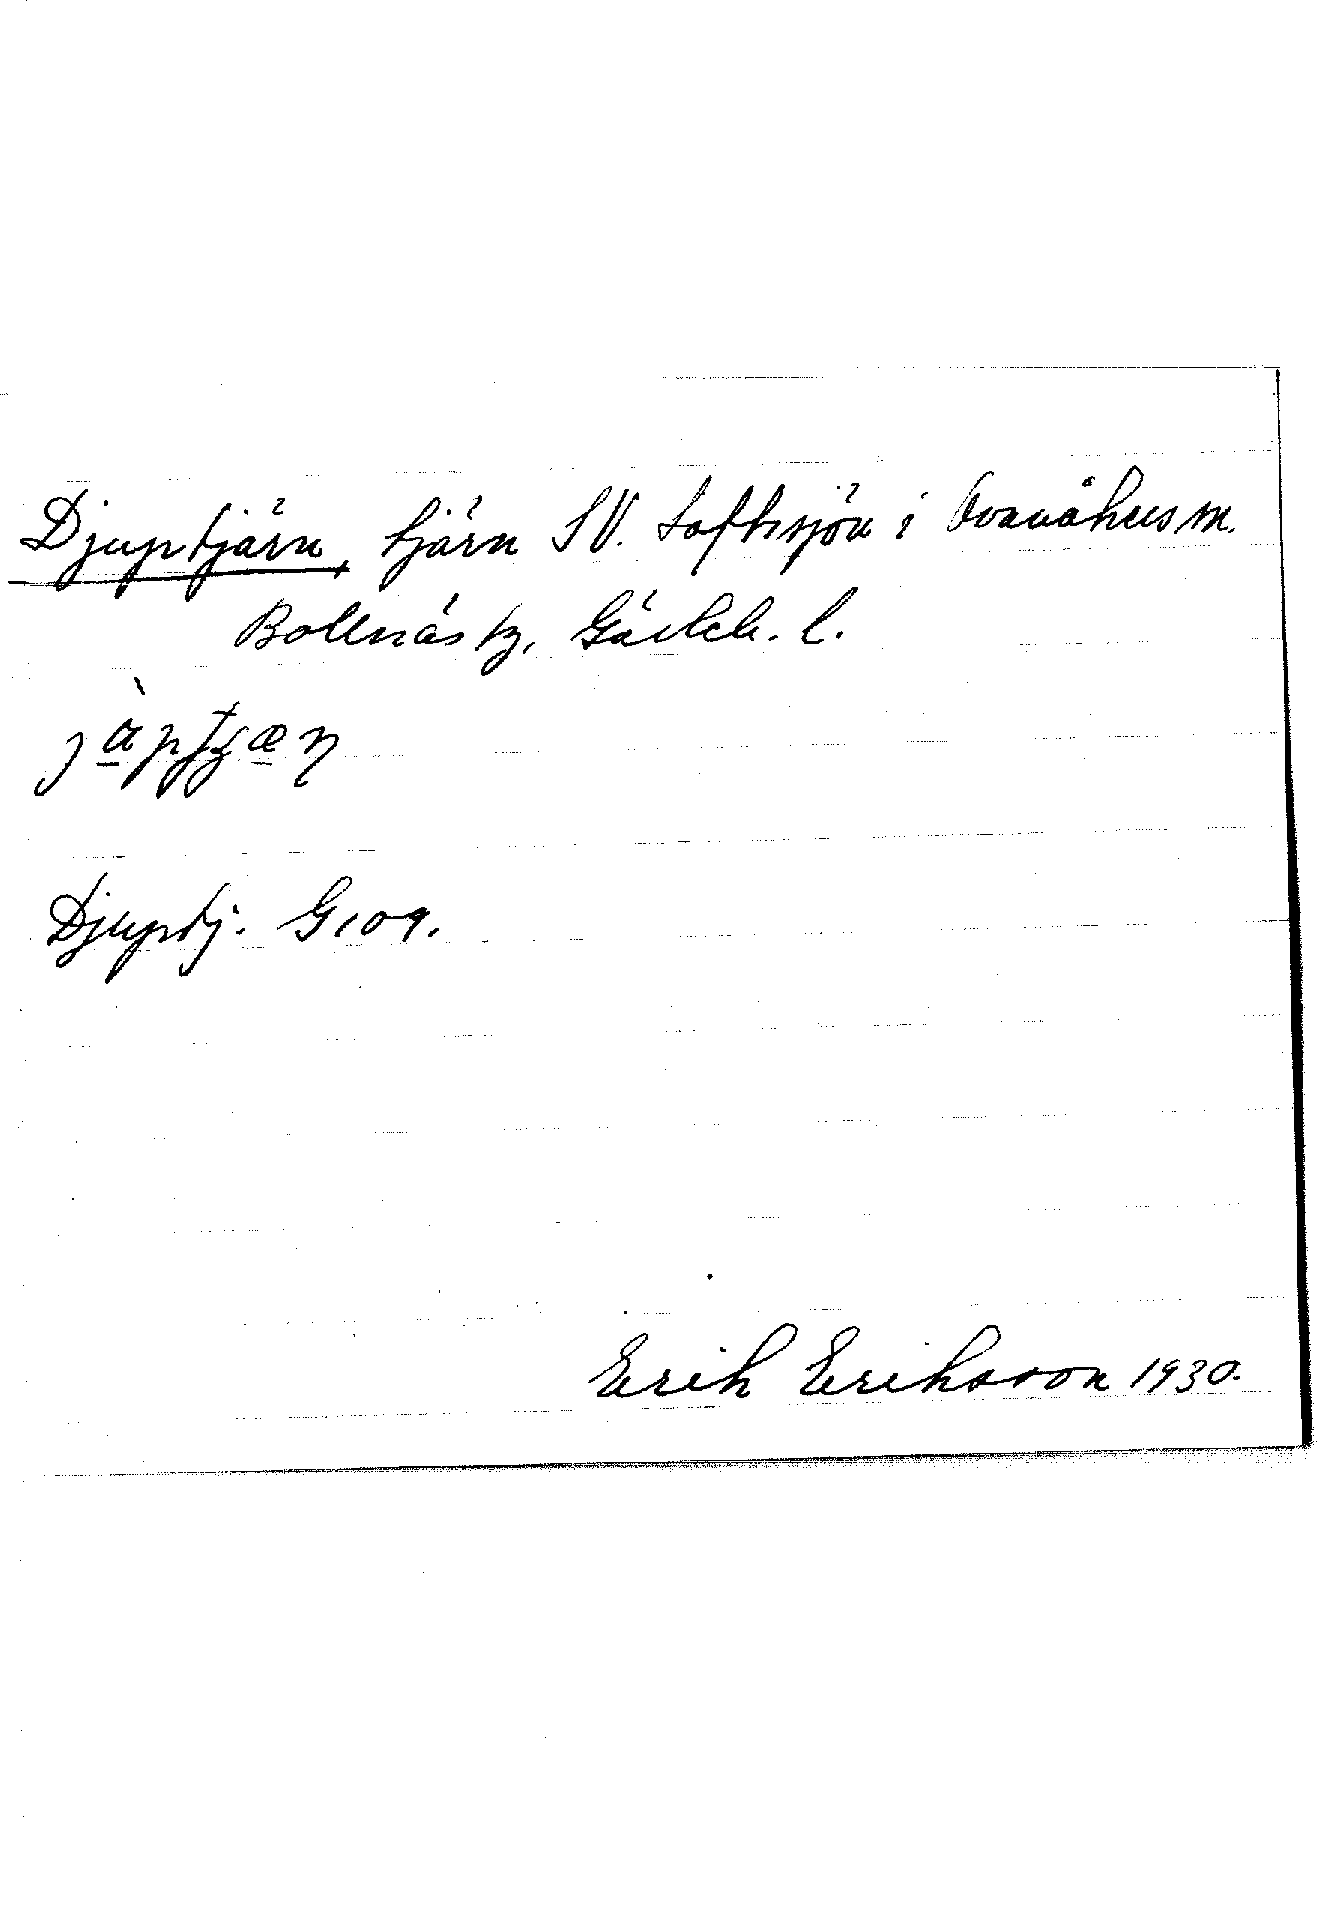 Djuptjärn, tjärn SV. Loftssjön i Ovanåkers m.
Bollnäs tg, Gävleb. l.
Djuptj. G109.
Erik Eriksson 1930.